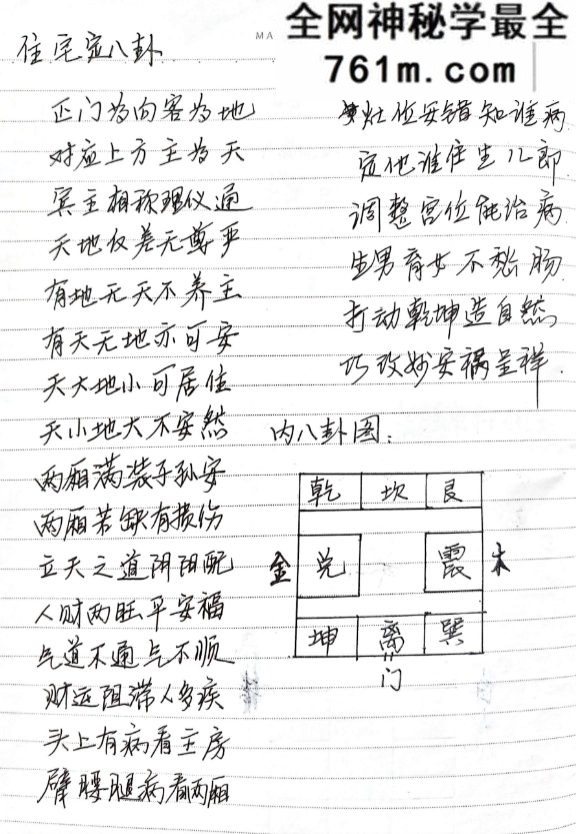 全网神秘学最全
761m.com
MA
住宅定八卦
正门为向客为地
对应上方主为天
宾主相称理仪通
天地仅差无尊严
有地无天不养主
有天无地亦可安
天大地小可居住
天小地大不安然
两厢满装子孙安
两厢若缺有损伤
立天之道阴阳配
人财两旺平安福
气道不通气不顺
财运阻滞人多疾
头上有病看主房
臂腰腿病看两厢
灶位安错知谁病
定他谁住生儿郎
调整宫位能治病
生男育女不愁肠
打动乾坤造自然
巧改妙安祸呈祥.
内八卦图:
乾 坎 艮
金 兑 震 木
坤 离 巽
门